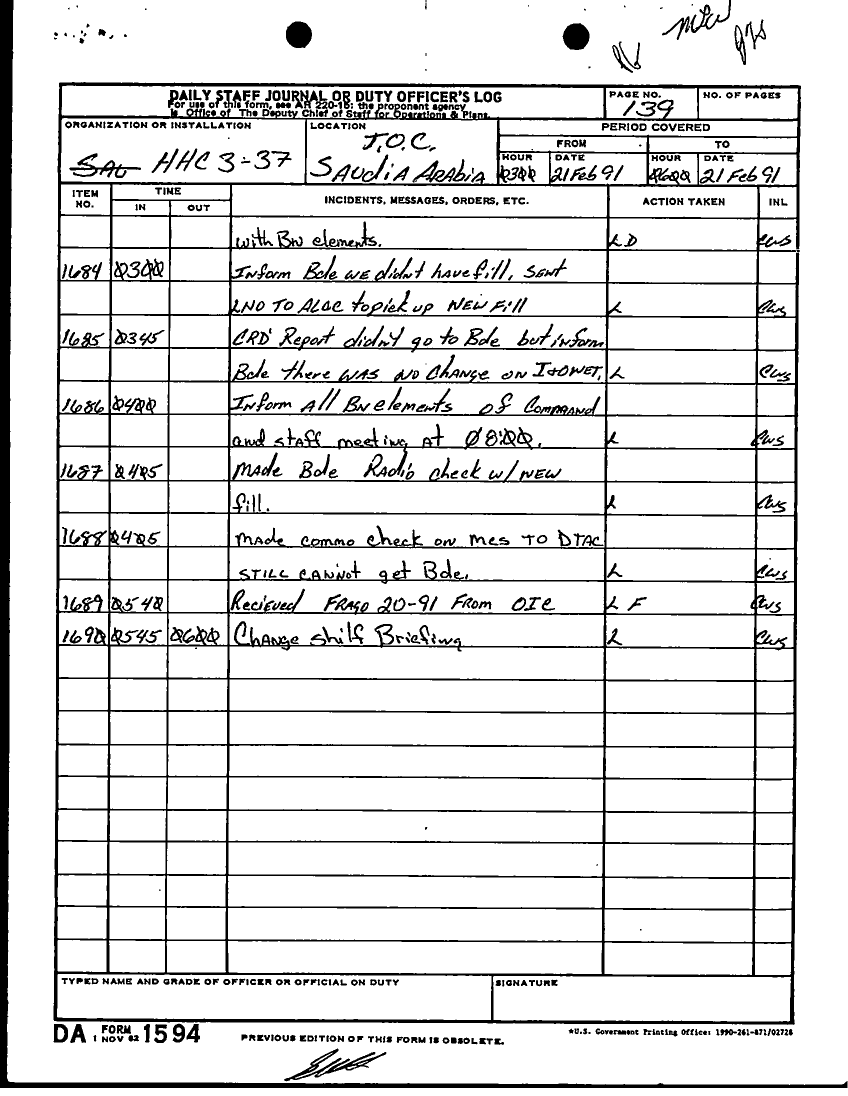 DAILY STAFF JOURNAL OR DUTY OFFICER'S LOG
For use of this form, see AR 220-15; the proponent agency
is Office of The Deputy Chief of Staff for Operations & Plans.
PAGE NO.
139
NO. OF PAGES
ORGANIZATION OR INSTALLATION
HHC 3-37
LOCATION
T.O.C.
SAUdiA ARAbiA
PERIOD COVERED
FROM
TO
HOUR
0300
DATE
21 Feb 91
HOUR
0600
DATE
21 Feb 91
ITEM NO.
TIME
IN
OUT
INCIDENTS, MESSAGES, ORDERS, ETC.
ACTION TAKEN
INL
with BN elements. L D CWS
1684 0300 INform Bde wE didnt have fill, SENT
LNO TO ALOC to pick up NEW Fill L CWS
1685 0345 CRD' Report didn't go to Bde but inform
Bde there WAS NO Change on I+OWET. L CWS
1686 0400 INform All BN elements of COMMAANd
and STAff meeting AT 0800. L CWS
1687 0405 MAde Bde RAdio check w/ NEW
fill. L CWS
1688 0405 MAde commo check on MCS TO DTAC
STILL CANNOT get Bde. L CWS
1689 0540 Recieved FRAgo 20-91 From OIC L F CWS
1690 0545 0600 ChANge Shilf Briefing L CWS
TYPED NAME AND GRADE OF OFFICER OR OFFICIAL ON DUTY
SIGNATURE
DA FORM 1594
1 NOV 62
PREVIOUS EDITION OF THIS FORM IS OBSOLETE.
*U.S. Government Printing Office: 1990-261-871/02728